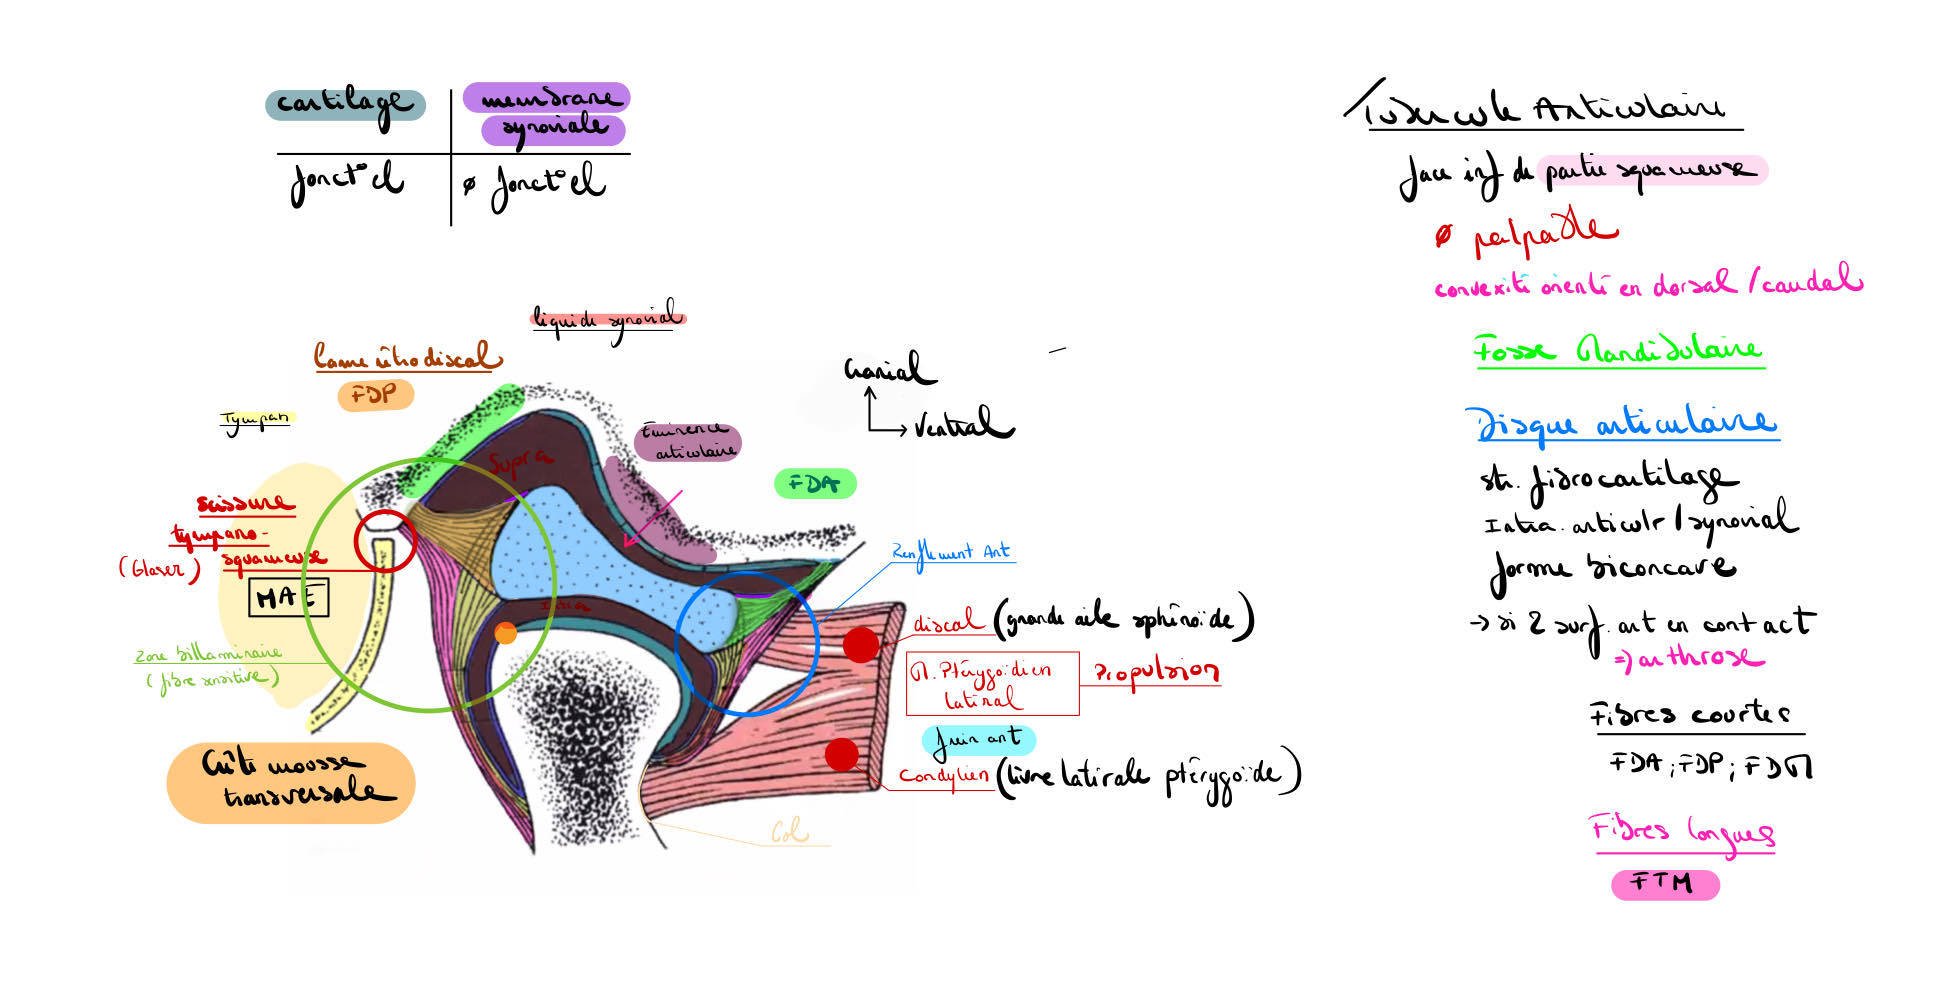 cartilage
membrane
synoviale
fonct°el
ø fonct°el
liquide synovial
Lame rétrodiscal
FDP
Tympan
Cranial
Ventral
Eminence
articulaire
Supra
FDA
Scissure
tympano-
squameuse
(Glaser)
MAE
Infra
Zone billaminaire
(fibre sensitive)
Crête mousse
transversale
Renflement Ant
discal (grande aile sphénoïde)
M. Ptérygoïdien
latéral
Propulsion
frein ant
Condylien (livre latérale ptérygoïde)
Col
Tubercule Articulaire
face inf de partie squameuse
ø palpable
convexité orienté en dorsal / caudal
Fosse Mandibulaire
Disque articulaire
str. fibrocartilage
Intra. articulr / synovial
forme biconcave
→ si 2 surf. art en contact
=> arthrose
Fibres courtes
FDA ; FDP ; FDM
Fibres longues
FTM